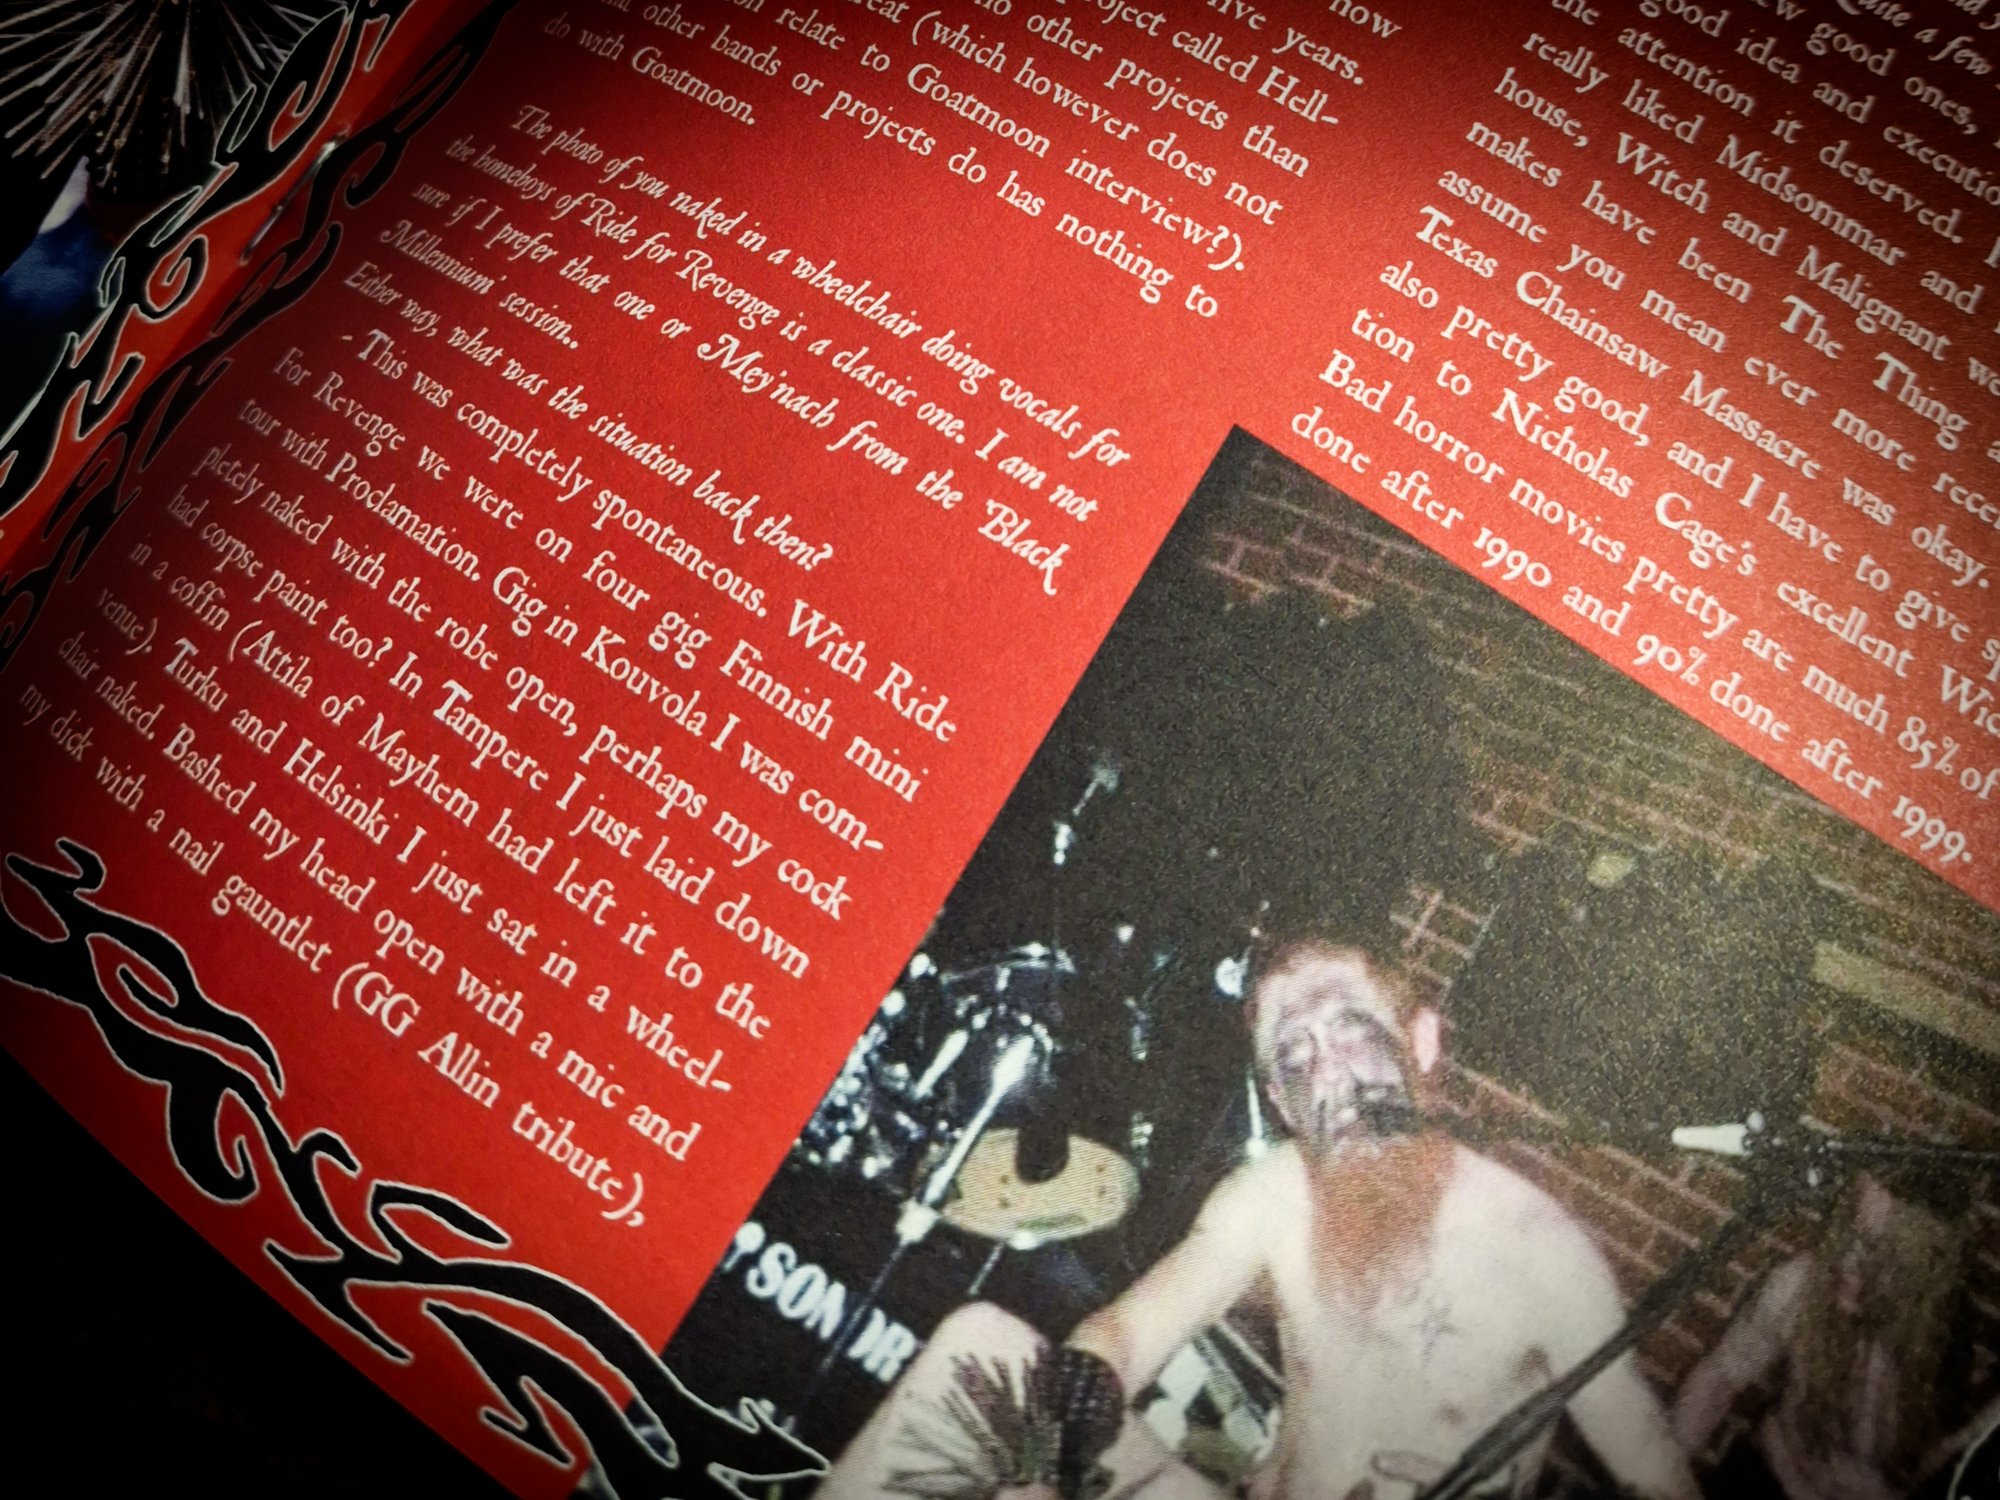 now
five years.
project called Hell-
no other projects than
(which however does not
relate to Goatmoon interview?).
other bands or projects do has nothing to
do with Goatmoon.
The photo of you naked in a wheelchair doing vocals for
the homeboys of Ride for Revenge is a classic one. I am not
sure if I prefer that one or Mey'nach from the 'Black
Millennium' session..
Either way, what was the situation back then?
- This was completely spontaneous. With Ride
For Revenge we were on four gig Finnish mini
tour with Proclamation. Gig in Kouvola I was com-
pletely naked with the robe open, perhaps my cock
had corpse paint too? In Tampere I just laid down
in a coffin (Attila of Mayhem had left it to the
venue). Turku and Helsinki I just sat in a wheel-
chair naked. Bashed my head open with a mic and
my dick with a nail gauntlet (GG Allin tribute),
a few
good ones,
good idea and
the attention it deserved.
really liked Midsommar and
house, Witch and Malignant
makes have been The Thing
assume you mean ever more
Texas Chainsaw Massacre was okay.
also pretty good, and I have to give
tion to Nicholas Cage's excellent
Bad horror movies pretty are much 85% of
done after 1990 and 90% done after 1999.
SON DR